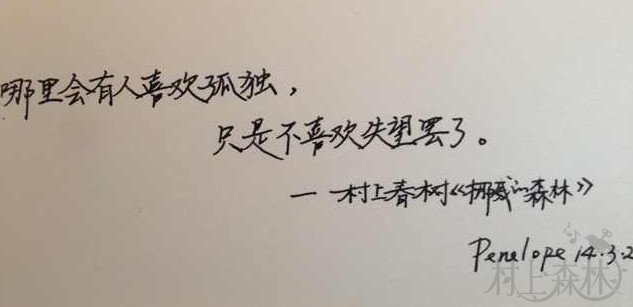 哪里会有人喜欢孤独，
只是不喜欢失望罢了。
——村上春树《挪威的森林》
Penelope 14.3.2
村上森林